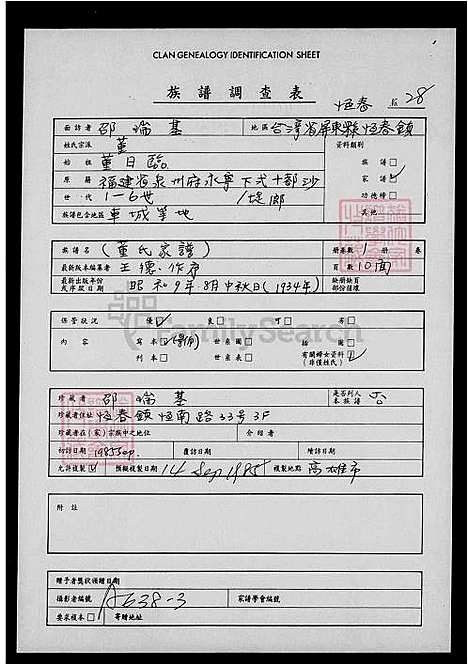 CLAN GENEALOGY IDENTIFICATION SHEET
族譜調查表
恒春 28
面訪者 邵瑞基 地區 台灣省屏東縣恒春鎮
姓氏宗派 董 資料類別
始祖 董日臨 族譜
原籍 福建省泉州府永寧下弍十都沙堤鄉 家譜 ✓
世代 1-6世 功德榜
族譜包含地區 車城等地 其他
族譜名 (董氏家譜) 冊卷數 1 冊 卷
最新版本編纂者 王德作序 頁數 10面
最新出版年份或序跋日期 昭和9年8月中秋日(1934年) 缺冊缺頁部份備註
保管狀況 優 ✓ 良 可 劣
內容 寫本 ✓ 世系圖 插圖
刊本 世系表 有關婦女資料(非僅姓氏) ✓
珍藏者 邵瑞基 是否列入本族譜 否
珍藏者住址 恒春鎮恒南路33号3F
珍藏者在(家)宗族中之地位 介紹者
初訪日期 1985 Sep. 覆訪日期 續訪日期
允許複製 ✓ 預擬複製日期 14 Sep 1985 複製地點 高雄市
附註
贈予者獎狀領贈日期
攝影者編號 A638-3 家譜學會編號
要求複本 寄贈地址
FamilySearch